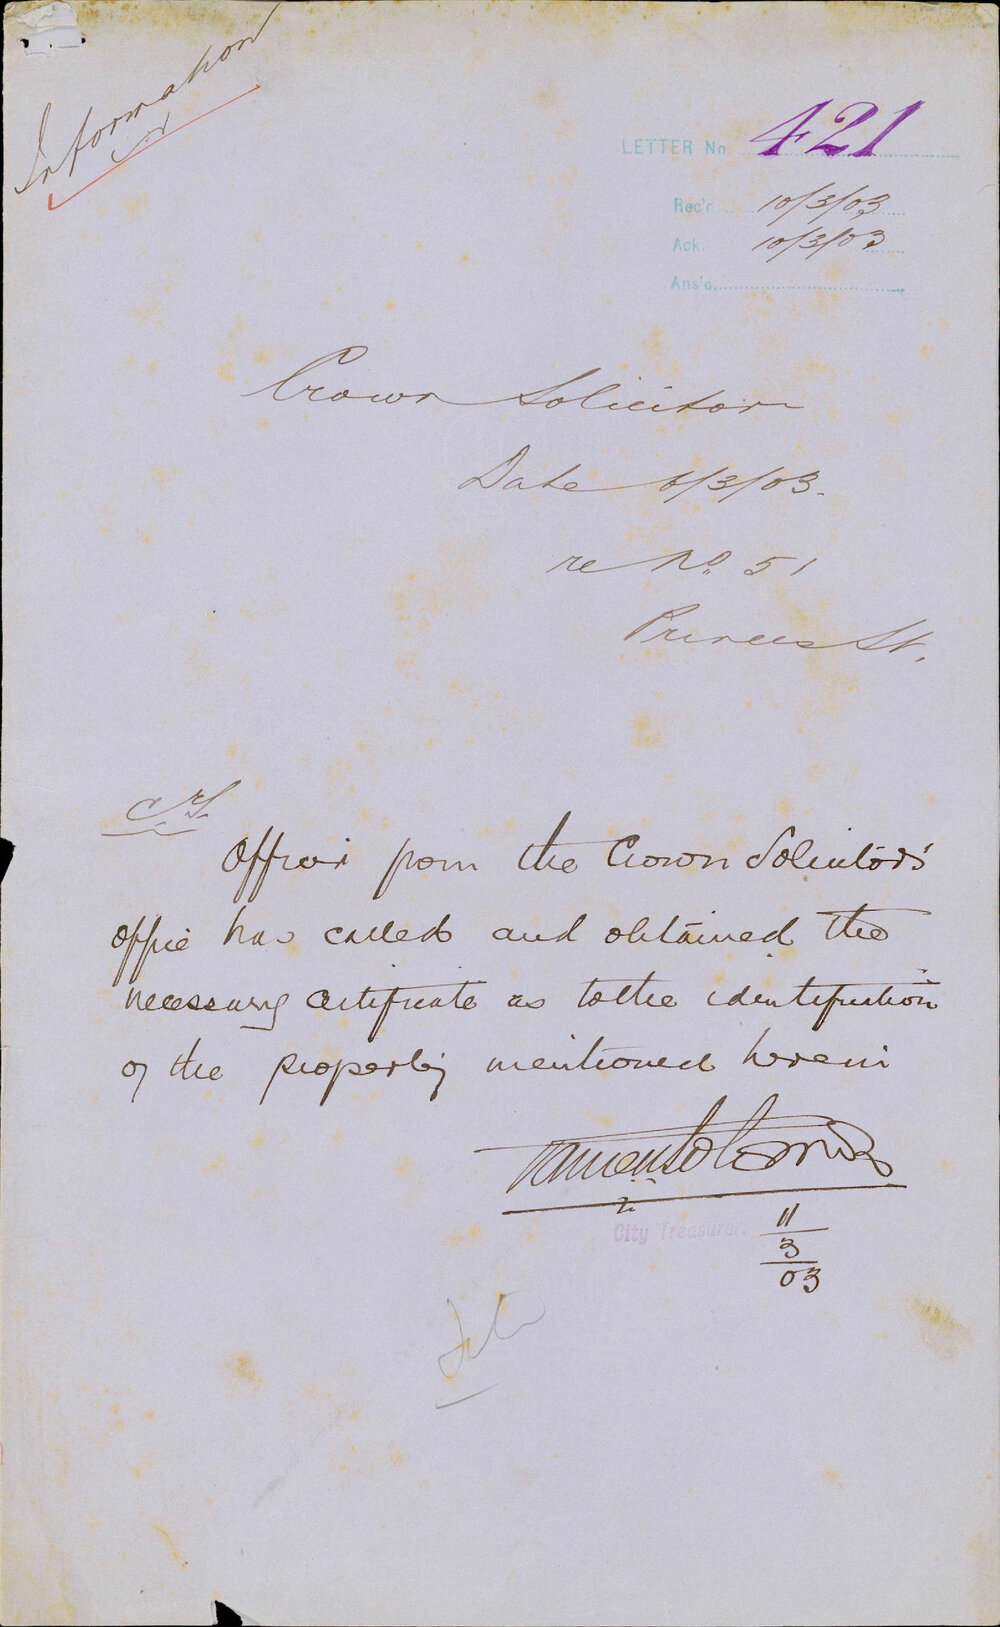 Information
LETTER No. 421
Rec'd 10/3/03
Ack. 10/3/03
Ans'd.
Crown Solicitor
Date 6/3/03.
re No. 51
Princes St.
Officer from the Crown Solicitors'
office has called and obtained the
necessary certificate as to the identification
of the property mentioned herein
City Treasurer.
11
3
03